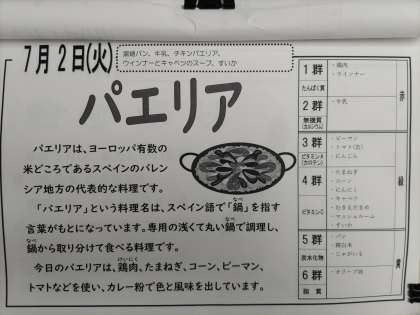 7月2日(火)
黒糖パン、牛乳、チキンパエリア、
ウインナーとキャベツのスープ、すいか
パエリア
パエリアは、ヨーロッパ有数の
米どころであるスペインのバレン
シア地方の代表的な料理です。
「パエリア」という料理名は、スペイン語で「鍋」を指す
なべ
言葉がもとになっています。専用の浅くて丸い鍋で調理し、
なべ
鍋から取り分けて食べる料理です。
なべ
今日のパエリアは、鶏肉、たまねぎ、コーン、ピーマン、
けいにく
トマトなどを使い、カレー粉で色と風味を出しています。
1群
たんぱく質
・鶏肉
・ウインナー
2群
無機質
(カルシウム)
・牛乳
赤
3群
ビタミンA
(カロテン)
・ピーマン
・トマト(缶)
・にんじん
4群
ビタミンC
・たまねぎ
・コーン
・にんにく
・キャベツ
・マッシュルーム
・すいか
緑
5群
炭水化物
・パン
・精白米
・じゃがいも
6群
脂質
・オリーブ油
黄